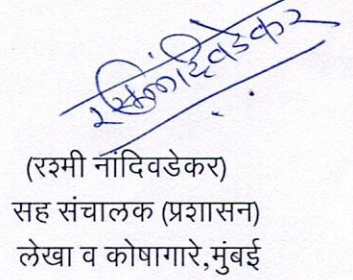 रश्मी नांदिवडेकर
(रश्मी नांदिवडेकर)
सह संचालक (प्रशासन)
लेखा व कोषागारे,मुंबई